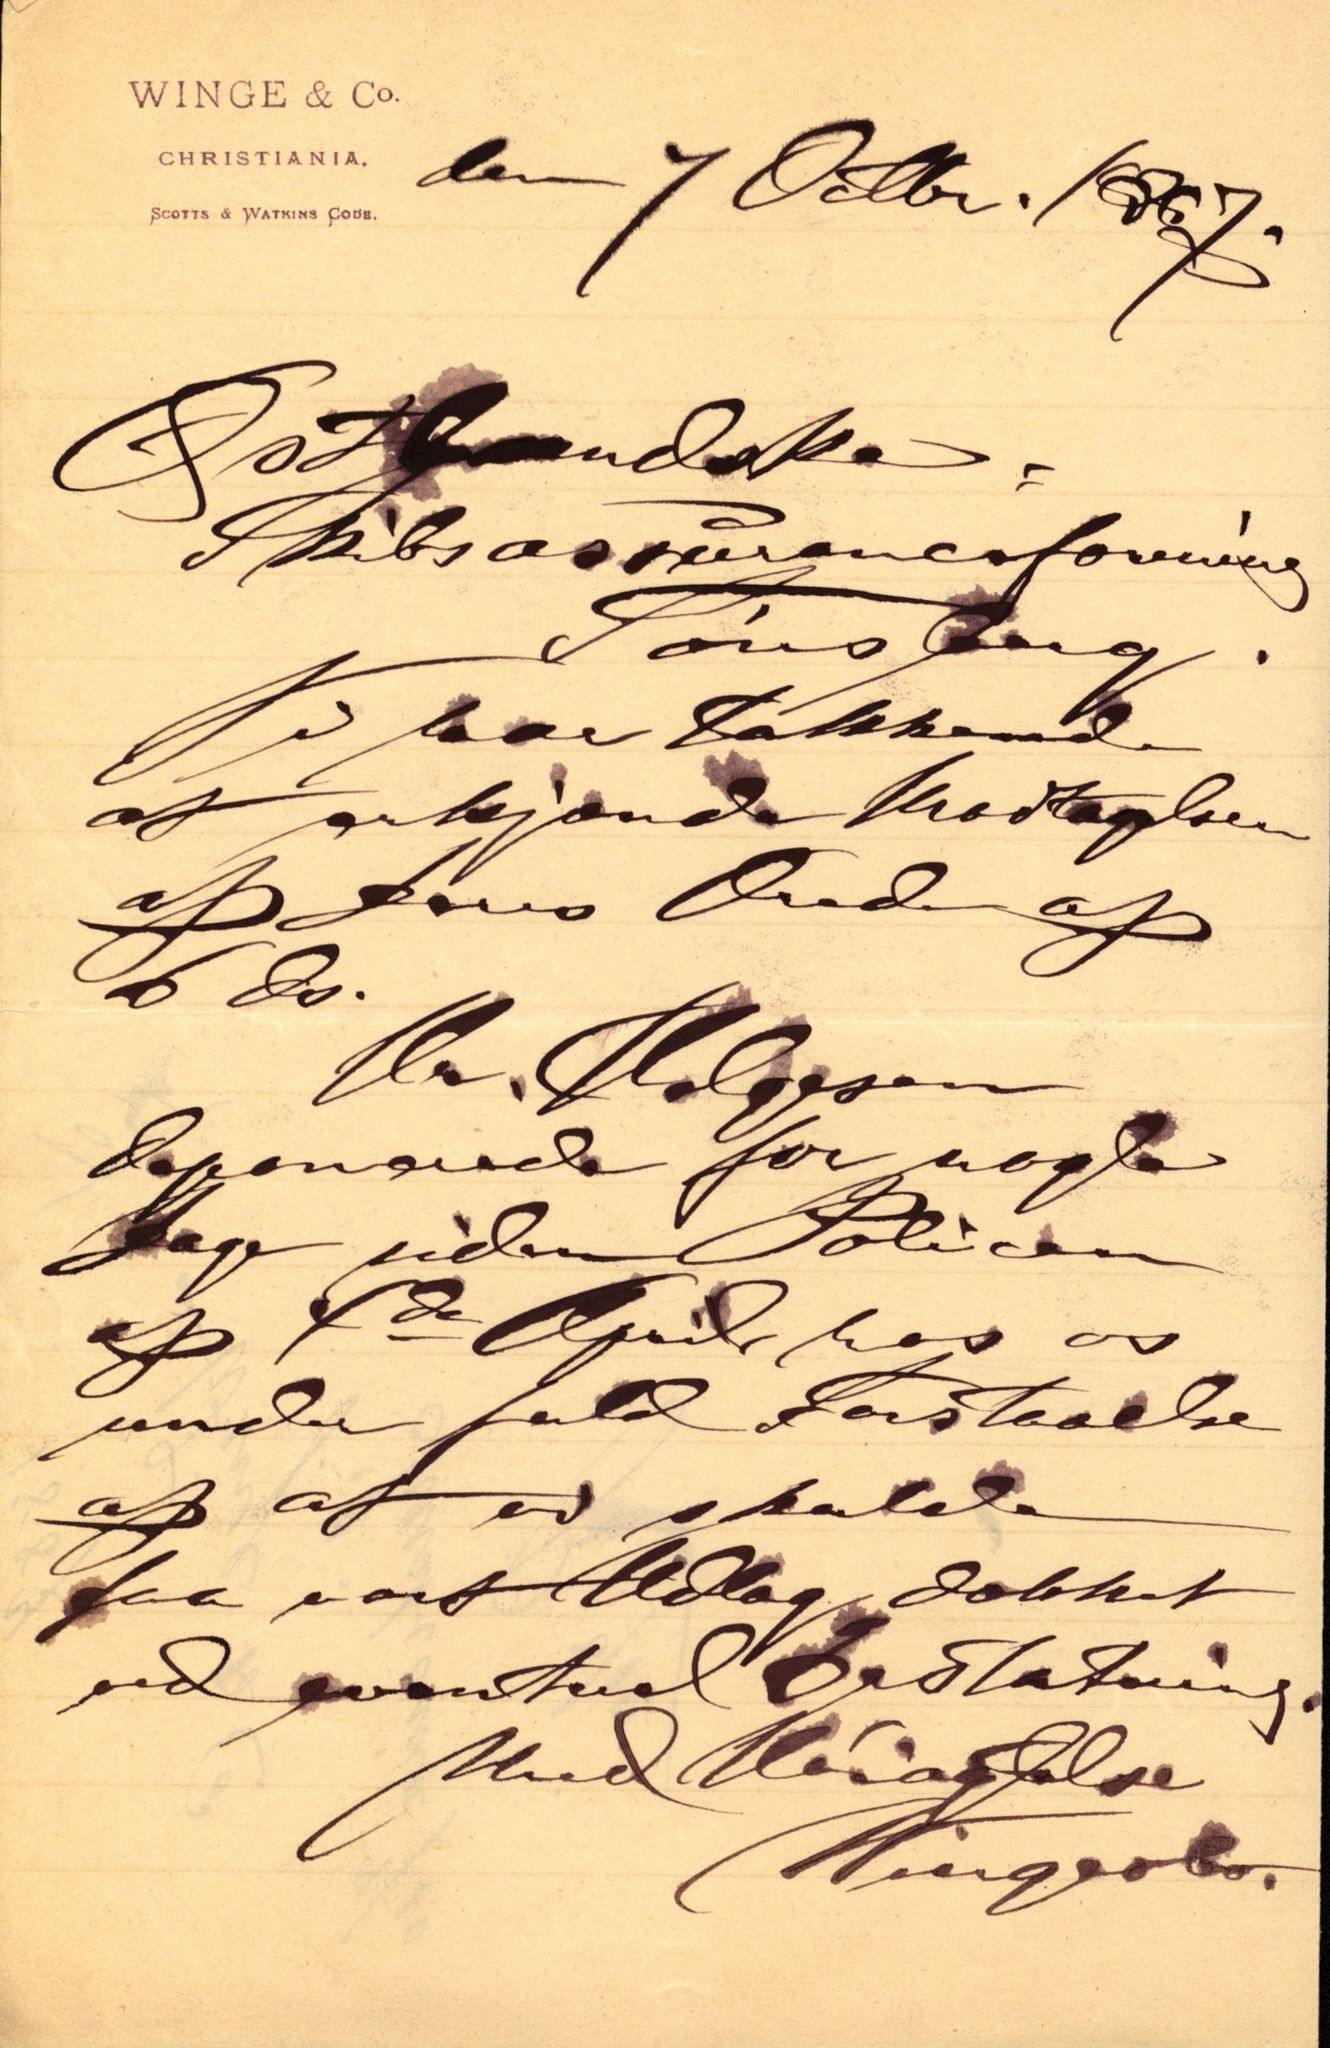 WINGE & Co.
CHRISTIANIA.
SCOTTS & WATKINS CODE.
den 7 Octbr. 1887.
Østlandske
Skibsassuranceforening
Tönsberg.
Vi har takkende
at erkjende Modtagelsen
af Deres Ærede af
6 ds.
Hr. Helgesen
deponerede for nogle
Dage siden Policen
af 4de April hos os
under fuld Forstaaelse
af at vi skulde
faa vort Udlæg dækket
ved eventuel Erstatning.
Med Høiagtelse
Winge & Co.